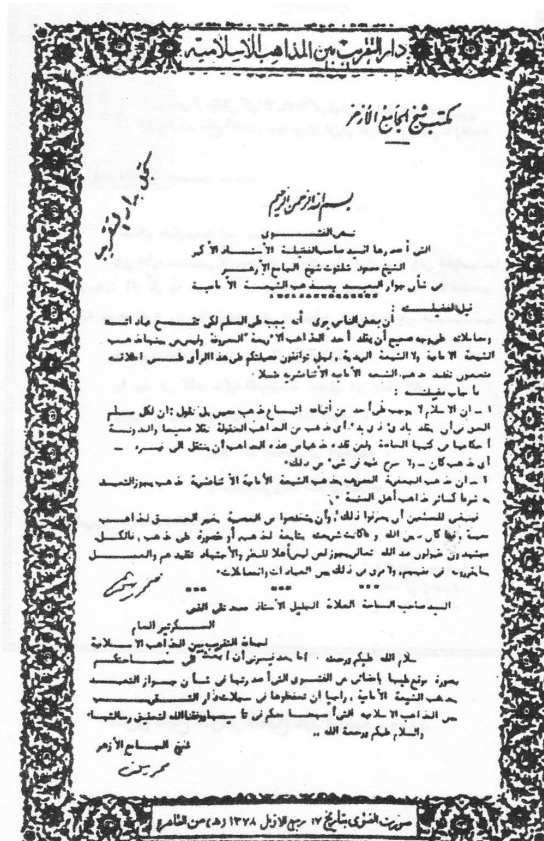 دار التقريب بين المذاهب الإسلامية
مكتب شيخ الجامع الأزهر
بسم الله الرحمن الرحيم
نص الفتوى
التي أصدرها السيد صاحب الفضيلة الأستاذ الأكبر
الشيخ محمود شلتوت شيخ الجامع الأزهر
في شأن جواز التعبد بمذهب الشيعة الأمامية
قيل لفضيلته :
أن بعض الناس يرى أنه يجب على المسلم لكي تقع عباداته
ومعاملاته على وجه صحيح أن يقلد أحد المذاهب الأربعة المعروفة وليس من بينها مذهب
الشيعة الامامية ولا الشيعة الزيدية ، فهل توافقون فضيلتكم على هذا الرأي على اطلاقه
فتمنعون تقليد مذهب الشيعة الامامية الاثنا عشرية مثلا .
فأجاب فضيلته :
١ ـ ان الاسلام لا يوجب على أحد من أتباعه اتباع مذهب معين بل نقول : ان لكل مسلم
الحق في أن يقلد بادئ ذي بدء أي مذهب من المذاهب المنقولة نقلا صحيحا والمدونة
أحكامها في كتبها الخاصة ولمن قلد مذهبا من هذه المذاهب أن ينتقل الى غيره ـ
أي مذهب كان ـ ولا حرج عليه في شيء من ذلك .
٢ ـ ان مذهب الجعفرية المعروف بمذهب الشيعة الأمامية الأثنا عشرية مذهب يجوز التعبد
به شرعا كسائر مذاهب أهل السنة .
فينبغي للمسلمين أن يعرفوا ذلك ، وأن يتخلصوا من العصبية بغير الحق لمذاهب
معينة ، فما كان دين الله وما كانت شريعته بتابعة لمذهب أو مقصورة على مذهب ، فالكل
مجتهدون مقبولون عند الله تعالى يجوز لمن ليس أهلا للنظر والأجتهاد تقليدهم والعمل
بما يقررونه في فقههم ولا فرق في ذلك بين العبادات والمعاملات .
السيد صاحب السماحة العلامة الجليل الأستاذ محمد تقي القمي
السكرتير العام
لجماعة التقريب بين المذاهب الاسلامية
سلام الله عليكم ورحمته . أما بعد فيسرني أن أبعث الى سماحتكم
بصورة موقع عليها بامضائي من الفتوى التي أصدرتها في شأن جواز التعبد
بمذهب الشيعة الأمامية ، راجيا ان تحفظوها في سجلات دار التقريب
بين المذاهب الاسلامية التي أسهمنا معكم في تأسيسها ووفقنا الله لتحقيق رسالتها .
والسلام عليكم ورحمة الله ..
شيخ الجامع الأزهر
صورت الفتوى بتاريخ ١٧ ربيع الأول ١٣٧٨ (هـ) من القاهرة